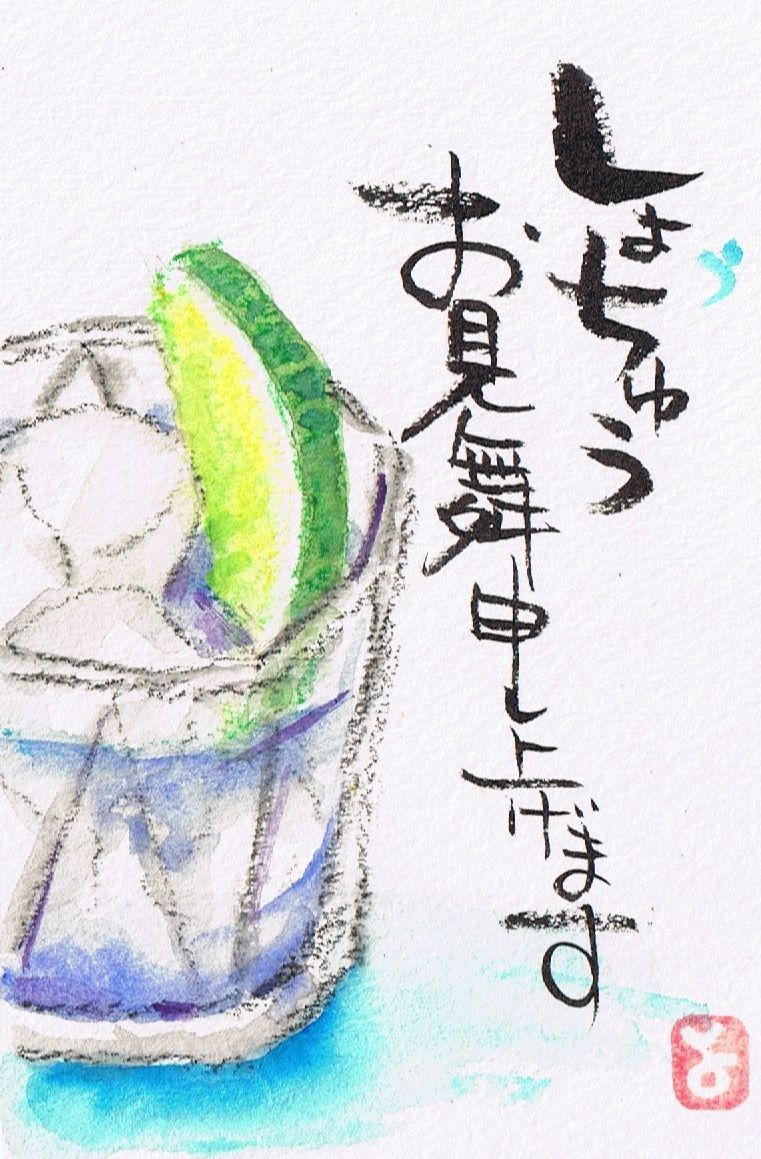 しょうちゅう
お見舞申し上げます